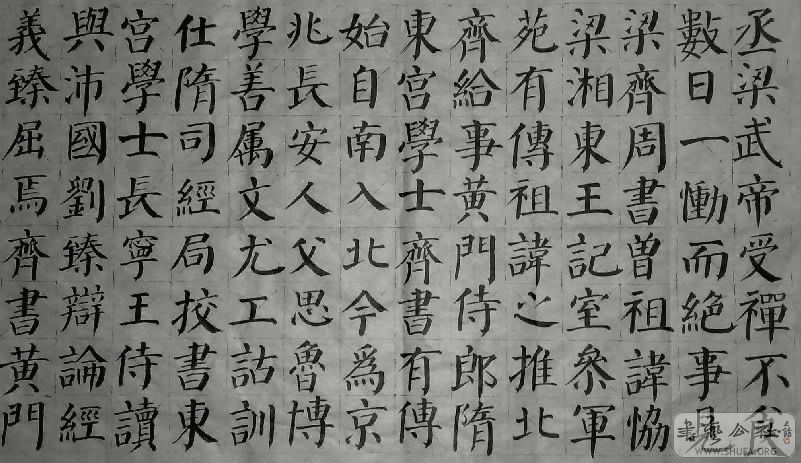 丞梁武帝受禪不食
數日一慟而絕事見
梁齊周書曾祖諱恊
梁湘東王記室叅軍
苑有傳祖諱之推北
齊給事黃門侍郎隋
東宮學士齊書有傳
始自南入北今爲京
兆長安人父思魯博
學善属文尤工詁訓
仕隋司經局挍書東
宮學士長寧王侍讀
與沛國劉臻辯論經
義臻屈焉齊書黃門
書藝公社
WWW.SHUFA.ORG